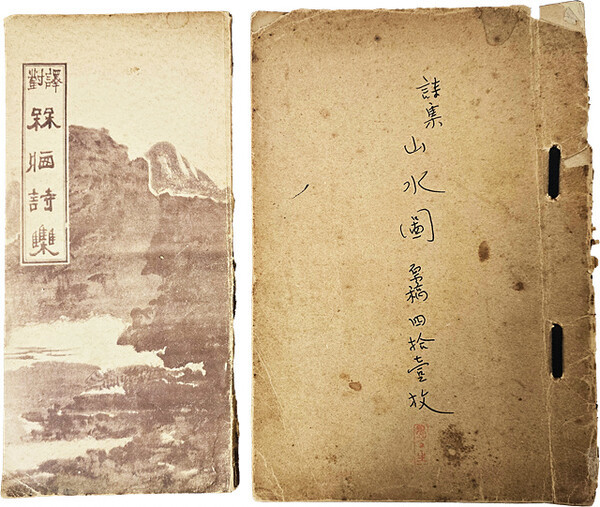 對譯
槑牕詩集
詩集 山水圖 原稿 四拾壹枚